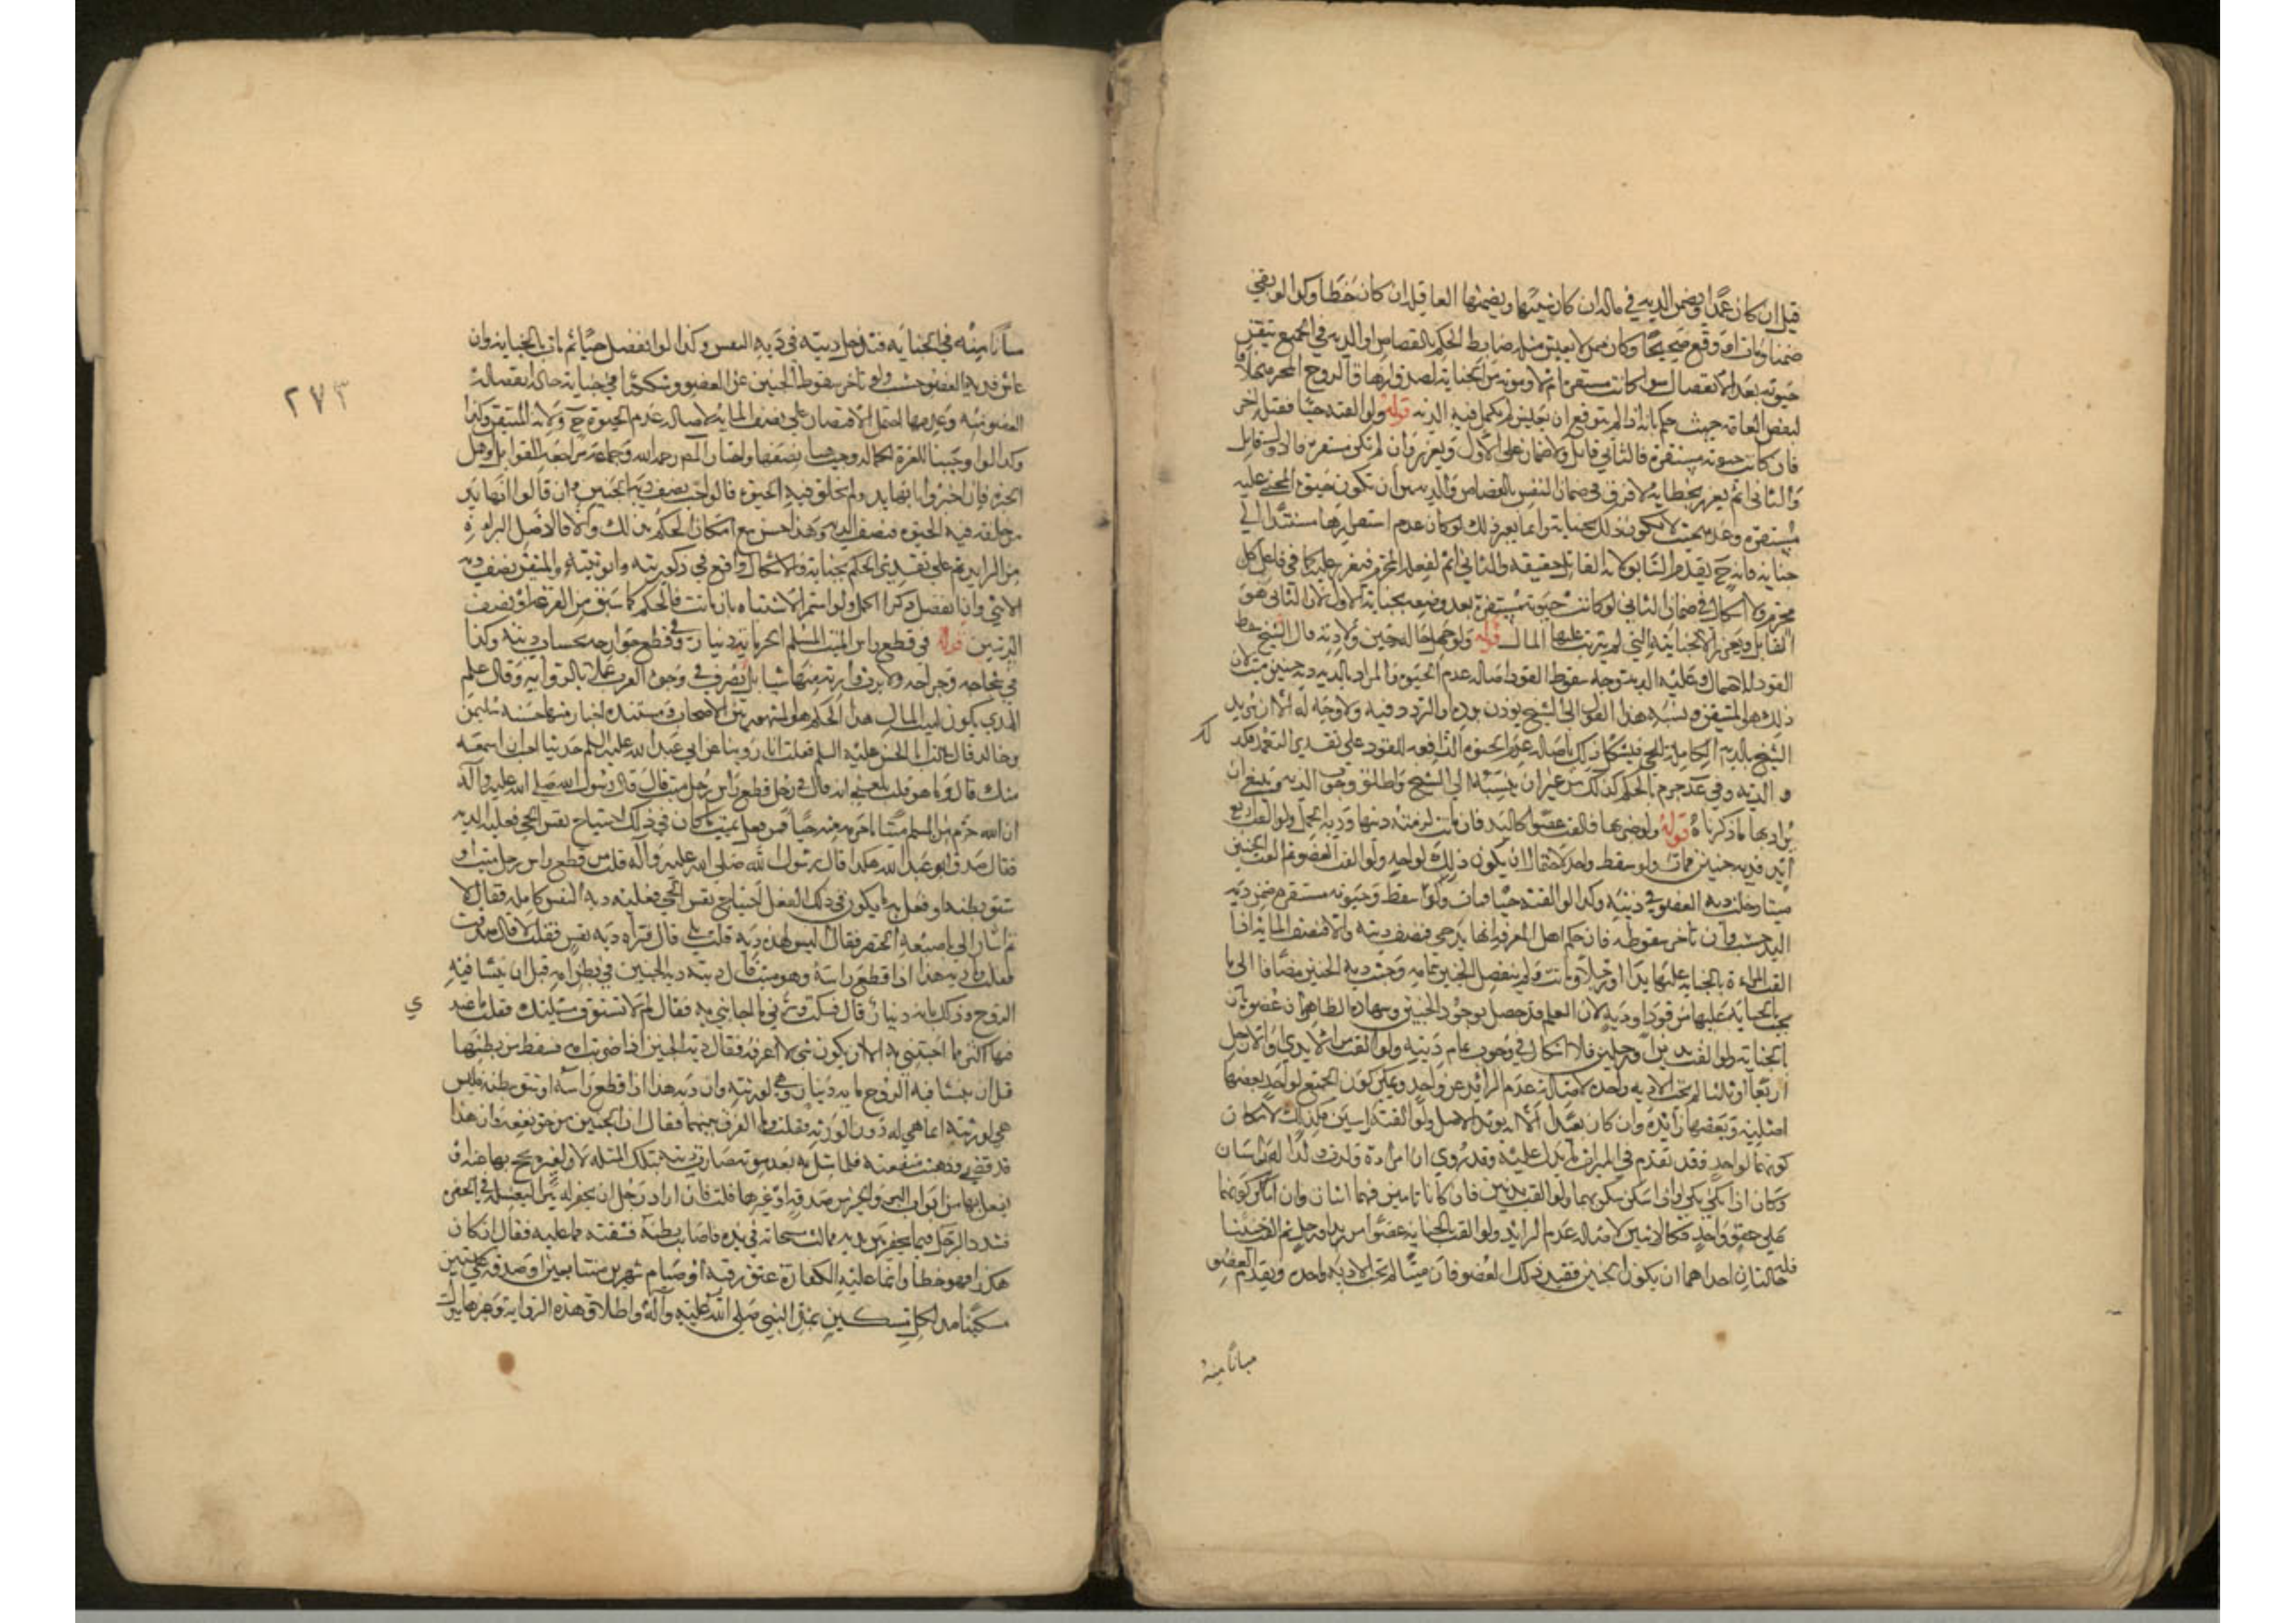 قيل ان كان عمدا ويضمن الدية في ماله ان كان شبيها ويضمنها العاقلة ان كان خطأ وكذا لو بقي
ضمنا ومات او وقع صحيحا وكان ممن لا يعيش مثله ضابط الحكم بالقصاص او الدية في الجميع تيقن
حيوته بعد الانفصال سواء كانت مستقرة ام لا وموته من الجناية لصدق ازهاق الروح المحرم خلافا
لبعض العامة حيث حكم بانه اذا لم يتوقع ان يعيش لم يكمل فيه الدية قوله ولو القته حيا فقتله اخر
فان كانت حيوته مستقرة فالثاني قاتل ولا ضمان على الاول ويعزر وان لم تكن مستقرة فالاول قاتل
والثاني اثم يعزر بخطائه لا فرق في ضمان النفس بالقصاص والدية بين ان تكون حيوة المجني عليه
مستقرة وعدمه بحيث لا يكون ذلك بجناية وانما يعتبر ذلك لو كان عدم استقرارها مستندا الى
جناية فانه ح يقدم السابق لانه القاتل حقيقة والثاني اثم لفعله المحرم فيعزر عليه كما في فاعل كل
محرم ولا اشكال في ضمان الثاني لو كانت حيوته مستقرة بعد وضعه بجناية الاول لان الثاني هو
القاتل ويعزر الاول لجنايته التي لم يترتب عليها المال قوله ولو جهل حاله حين ولادته قال الشيخ سقط
القود للاحتمال وعليه الدية توجه سقوط القود اصالة عدم الحيوة والمراد بالدية دية جنين ميت لان
ذلك هو المتيقن ونسبه هذا القول الى الشيخ يوذن برده او التردد فيه ولا وجه له الا ان يريد
الشيخ بالدية الكاملة للحي فيشكل ذلك باصالة عدم الحيوة الدافعة للقود على تقدير التعمد فكذ
لك
والدية وفي عد جزم بالحكم كذلك من غير ان ينسبه الى الشيخ واطلق وجوب الدية وينبغي ان
يراد بها ما ذكرناه قوله ولو ضربها فالقت عضوا كاليد فان ماتت لزمته ديتها ودية الحمل ولو القت اربع
ايد فدية جنين فمات ولو سقط واحد لاحتمال ان يكون ذلك لواحد ولو القت العضو ثم القت الجنين
ميتا دخلت دية العضو في ديته وكذا لو القته حيا فمات ولو سقط وحيوته مستقرة ضمن دية
اليد حسب وان تاخر سقوطه فان حكم اهل المعرفة انها يد حي فنصف ديته والا فنصف المائة اذا
القت المراة بالجناية عليها يدا او رجلا وماتت ولم ينفصل الجنين بتمامه وجبت دية الجنين مضافا الى ما
يجب بالجناية عليها من قود او دية لان العلم قد حصل بوجود الجنين وشهادة الظاهر ان عضوه بان
الجناية ولو القت يدين او رجلين فلا اشكال في وجوب تمام ديته ولو القت من الايدي او الارجل
اربعا او ثلاثا لم يجب الا دية واحدة لاصالة عدم الزائد عن واحد ويمكن كون الجميع لواحد بعضها
اصلية وبعضها زائدة وان كان بعيدا
كونهما لواحد فقد تقدم في الميراث ما يدل عليه وقد روي ان امراة ولدت ولدا له راسان
وكان اذا بكى بكى بهما واذا سكن سكن بهما ولو القت بدنين فان كانا تامين فهما اثنان وان امكن كونهما
على حقو واحد فكالاثنين لاصالة عدم الزايد ولو القت بالجناية عضوا من يد او رجل ثم القت جنينا
فله حالتان احداهما ان يكون الجنين فقيد ذلك العضو فان ميتا لم تجب الا دية واحدة ويقدم العضو
مبانا منه
٢٧٣
مبانا منه في الجناية فتدخل ديته في دية النفس وكذا لو انفصل حيا ثم مات بالجناية وان
عاش فدية العضو حسب ولو تاخر سقوط الجنين عن العضو وشككنا في حياته حالة انفصاله
العضو منه وعدمها احتمل الاقتصار على نصف المائة لاصالة عدم الحيوة ح ولانه المتيقن وكذا
وكذا لو اوجبنا الغرة الكاملة وجب هنا نصفها واختار المص رحمه الله وجماعة مراجعة القوابل واهل
الخبرة فان اخبروا بانها يد ولم يخلق فيه الحيوة فالواجب نصف دية الجنين وان قالوا انها يد
من خلقه فيه الحيوة فنصف الدية وهذا حسن مع امكان الحكم من لك والا فالاصل البراءة
من الزايد ثم على تقدير الحكم بجناية والاشكال واقع في ذكوريته وانوثيته والمتيقن نصف دية
الانثى وان انفصل ذكرا اكمل ولو استمر الاشتباه بان ماتت فالحكم كما سبق من القرعة او نصف
الديتين قوله في قطع راس الميت المسلم الحر مائة دينار وفي قطع جوارحه بحساب ديته وكذا
في شجاجه وجراحه ولا يرث وارثه منها شيا بل تصرف في وجوه القرب عملا بالرواية وقال علم
الهدى يكون لبيت المال هذا الحكم هو المشهور بين الاصحاب ومستنده اخبار منها حسنة سليمن
بن خالد قال سالت ابا الحسن عليه السلم فقلت انا روينا عن ابي عبد الله عليه السلم حديثا احب ان اسمعه
منك قال وما هو قلت بلغني انه قال في رجل قطع راس رجل ميت قال قال رسول الله صلى الله عليه وآله
ان الله حرم من المسلم ميتا ما حرم منه حيا فمن فعل بميت ما كان في ذلك اجتياح نفس الحي فعليه الدية
فقال صدق ابو عبد الله هكذا قال رسول الله صلى الله عليه وآله قلت من قطع راس رجل ميت او
شق بطنه او فعل به ما يكون في ذلك الفعل اجتياح نفس الحي فعليه دية النفس كاملة فقال لا
ثم اشار الى باصبعه الخنصر فقال اليس لهذه دية قلت بلى قال فتراه دية نفس فقلت لا قال صدقت
فقلت وما دية هذا اذا قطع راسه وهو ميت قال ديته دية الجنين في بطن امه قبل ان ينشا فيه
الروح وذلك مائة دينار قال فسكت وسرني ما اجابني به فقال لم لا تستوف مسئلتك فقلت ما عند
ي
فيها اكثر مما اجبتني به الا ان يكون شى لا اعرفه فقال دية الجنين اذا ضربت امه فسقط من بطنها
قبل ان ينشا فيه الروح مائة دينار وهي لورثته وان دية هذا اذا قطع راسه او شق بطنه فليس
هي لورثته انما هي له دون الورثة فقلت وما الفرق بينهما فقال ان الجنين مرجو نفعه وان هذا
قد قضى وذهبت منفعته فلما مثل به بعد موته صارت ديته بتلك المثلة له لا لغيره يحج بها عنه او
يفعل بها من ابواب البر والخير من صدقة او غيرها قلت فان اراد رجل ان يحفر له بئرا ليغسله في الحفرة
فسدد الرجل فيما يحفر بين يديه فمالت مسحاته في يده فاصاب بطنه فشقته فما عليه فقال ان كان
هكذا فهو خطأ وانما عليه الكفارة عتق رقبة او صيام شهرين متتابعين او صدقة على ستين
مسكينا مد لكل مسكين بمد النبي صلى الله عليه وآله واطلاق هذه الرواية وغيرها يدل